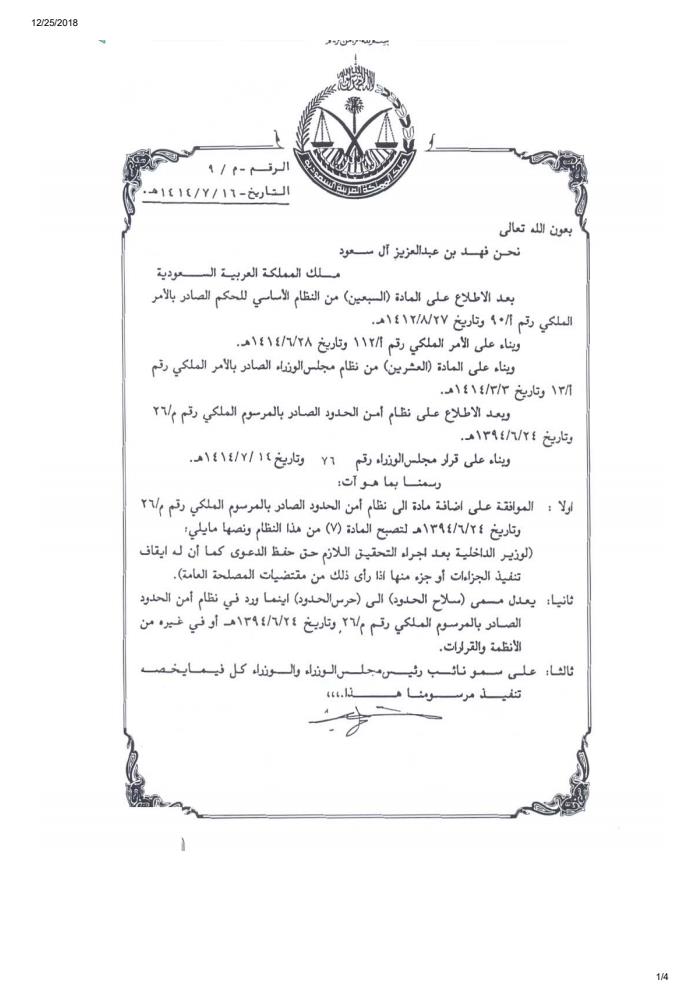 12/25/2018
ملك المملكة العربية السعودية
الرقـم - م / ٩
التاريخ - ١٤١٤/٧/١٦هـ.
بعون الله تعالى
نحـن فهـد بن عبدالعزيز آل سـعود
مـلك المملكة العربية السـعودية
بعد الاطلاع على المادة (السبعين) من النظام الأساسي للحكم الصادر بالأمر
الملكي رقم أ/٩٠ وتاريخ ١٤١٢/٨/٢٧هـ.
وبناء على الأمر الملكي رقم أ/١١٢ وتاريخ ١٤١٤/٦/٢٨هـ.
وبناء على المادة (العشرين) من نظام مجلس الوزراء الصادر بالأمر الملكي رقم
أ/١٣ وتاريخ ١٤١٤/٣/٣هـ.
وبعد الاطلاع على نظام أمن الحدود الصادر بالمرسوم الملكي رقم م/٢٦
وتاريخ ١٣٩٤/٦/٢٤هـ.
وبناء على قرار مجلس الوزراء رقم ٧٦ وتاريخ ١٤١٤/٧/١٤هـ.
رسمنـا بما هـو آت:
اولا : الموافقة على اضافة مادة الى نظام أمن الحدود الصادر بالمرسوم الملكي رقم م/٢٦
وتاريخ ١٣٩٤/٦/٢٤هـ لتصبح المادة (٧) من هذا النظام ونصها مايلي:
(لوزير الداخلية بعد اجراء التحقيق اللازم حق حفظ الدعوى كما أن له ايقاف
تنفيذ الجزاءات أو جزء منها اذا رأى ذلك من مقتضيات المصلحة العامة).
ثانيا: يعدل مسمى (سلاح الحدود) الى (حرس الحدود) اينما ورد في نظام أمن الحدود
الصادر بالمرسوم الملكي رقم م/٢٦ وتاريخ ١٣٩٤/٦/٢٤هـ أو في غيره من
الأنظمة والقرارات.
ثالثا: على سمو نائب رئيس مجلس الوزراء والوزراء كل فيما يخصه
تنفيـذ مرسـومنـا هـذا،،،،
1/4